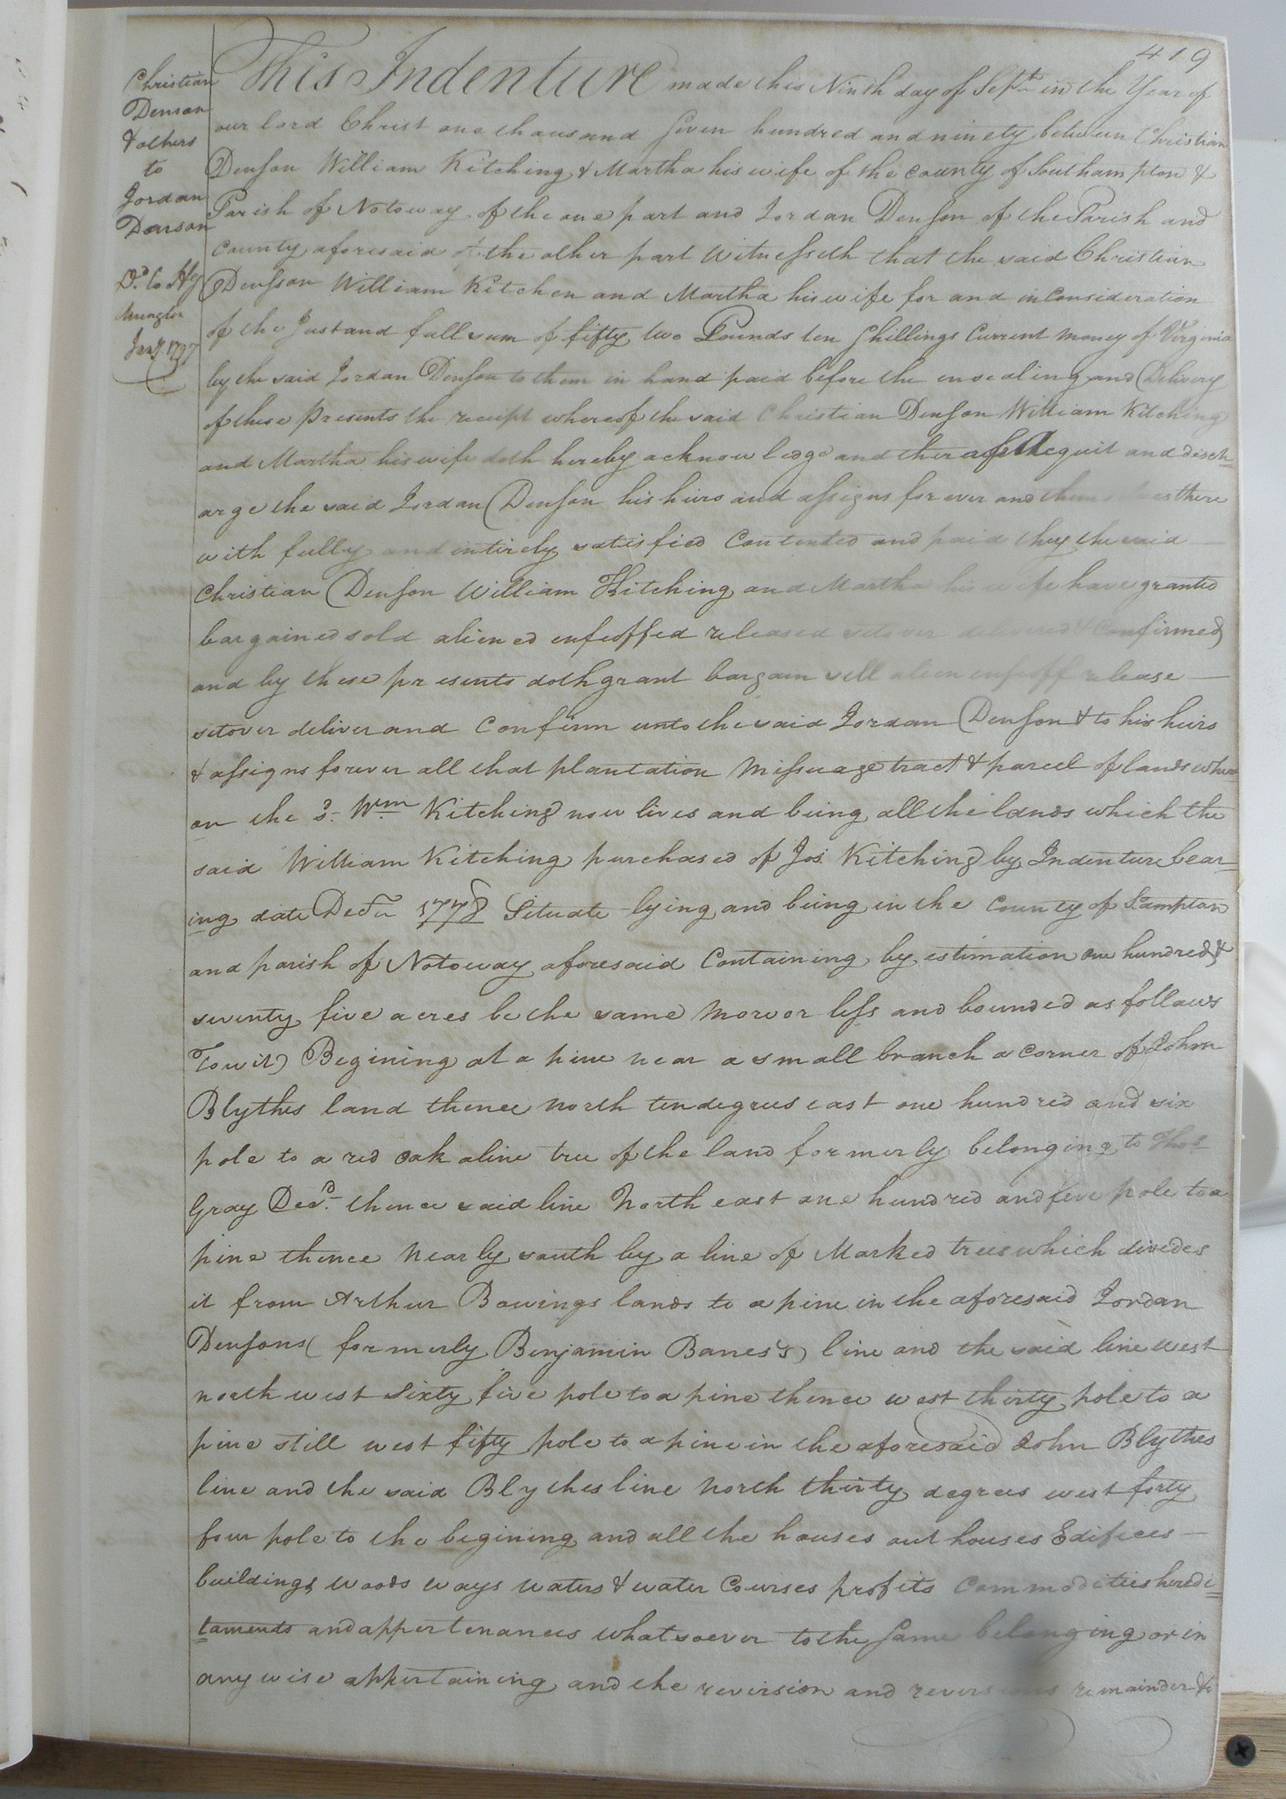 419
Christian
Denson
& others
to
Jordan
Denson
Jany. 1797
This Indenture made this Ninth day of Sept. in the Year of
our lord Christ one thousand seven hundred and ninety between Christian
Denson William Kitching & Martha his wife of the County of Southampton &
Parish of Notoway of the one part and Jordan Denson of the Parish and
County aforesaid of the other part Witnesseth that the said Christian
Densson William Kitchen and Martha his wife for and in Consideration
of the Just and full sum of fifty two Pounds ten shillings Current Money of Virginia
by the said Jordan Denson to them in hand paid before the ensealing and Delivery
of these Presents the receipt whereof the said Christian Denson William Kitching
and Martha his wife doth hereby acknowledge and thereof Acquit and disch=
arge the said Jordan Denson his heirs and assigns for ever and there
with fully and intirely satisfied Contented and paid they the said
Christian Denson William Kitching and Martha his wife have granted
bargained sold aliened enfeoffed released setover delivered & Confirmed
and by these presents doth grant bargain sell alien enfeoff release
setover deliver and Confirm unto the said Jordan Denson & to his heirs
& assigns forever all that plantation Missuage tract & parcel of lands where
on the sd. Wm. Kitching now lives and being all the lands which the
said William Kitching purchased of Jos. Kitching by Indenture bear=
ing date Decr. 1778 Situate lying and being in the County of Sampton
and parish of Notoway aforesaid Containing by estimation one hundred &
seventy five acres be the same More or less and bounded as follows
Towit) Begining at a pine near a small branch a Corner of John
Blythes land thence North ten degrees east one hundred and six
pole to a red oak a line tree of the land formerly belonging to Thos.
Gray Decd. thence said line North east one hundred and five pole to a
pine thence Nearly south by a line of Marked trees which divides
it from Arthur Bowings lands to a pine in the aforesaid Jordan
Densons (formerly Benjamin Banes's) line and the said line west
north west Sixty five pole to a pine thence west thirty pole to a
pine still west fifty pole to a pine in the aforesaid John Blythes
line and the said Blythes line North thirty degrees west forty
four pole to the begining and all the houses out houses Edifices
buildings Woods ways waters & water Courses profits Commodities heredi=
taments and appertenances whatsoever to the same belonging or in
any wise appertaining and the reversion and reversions remainder &